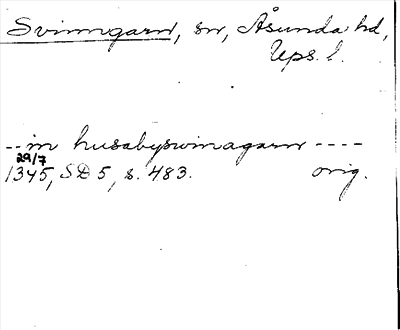 Svinngarn, sn, Åsunda hd,
Ups. l.
-- in husabyswinagarn ----
29/7
1345, SD 5, s. 483. orig.